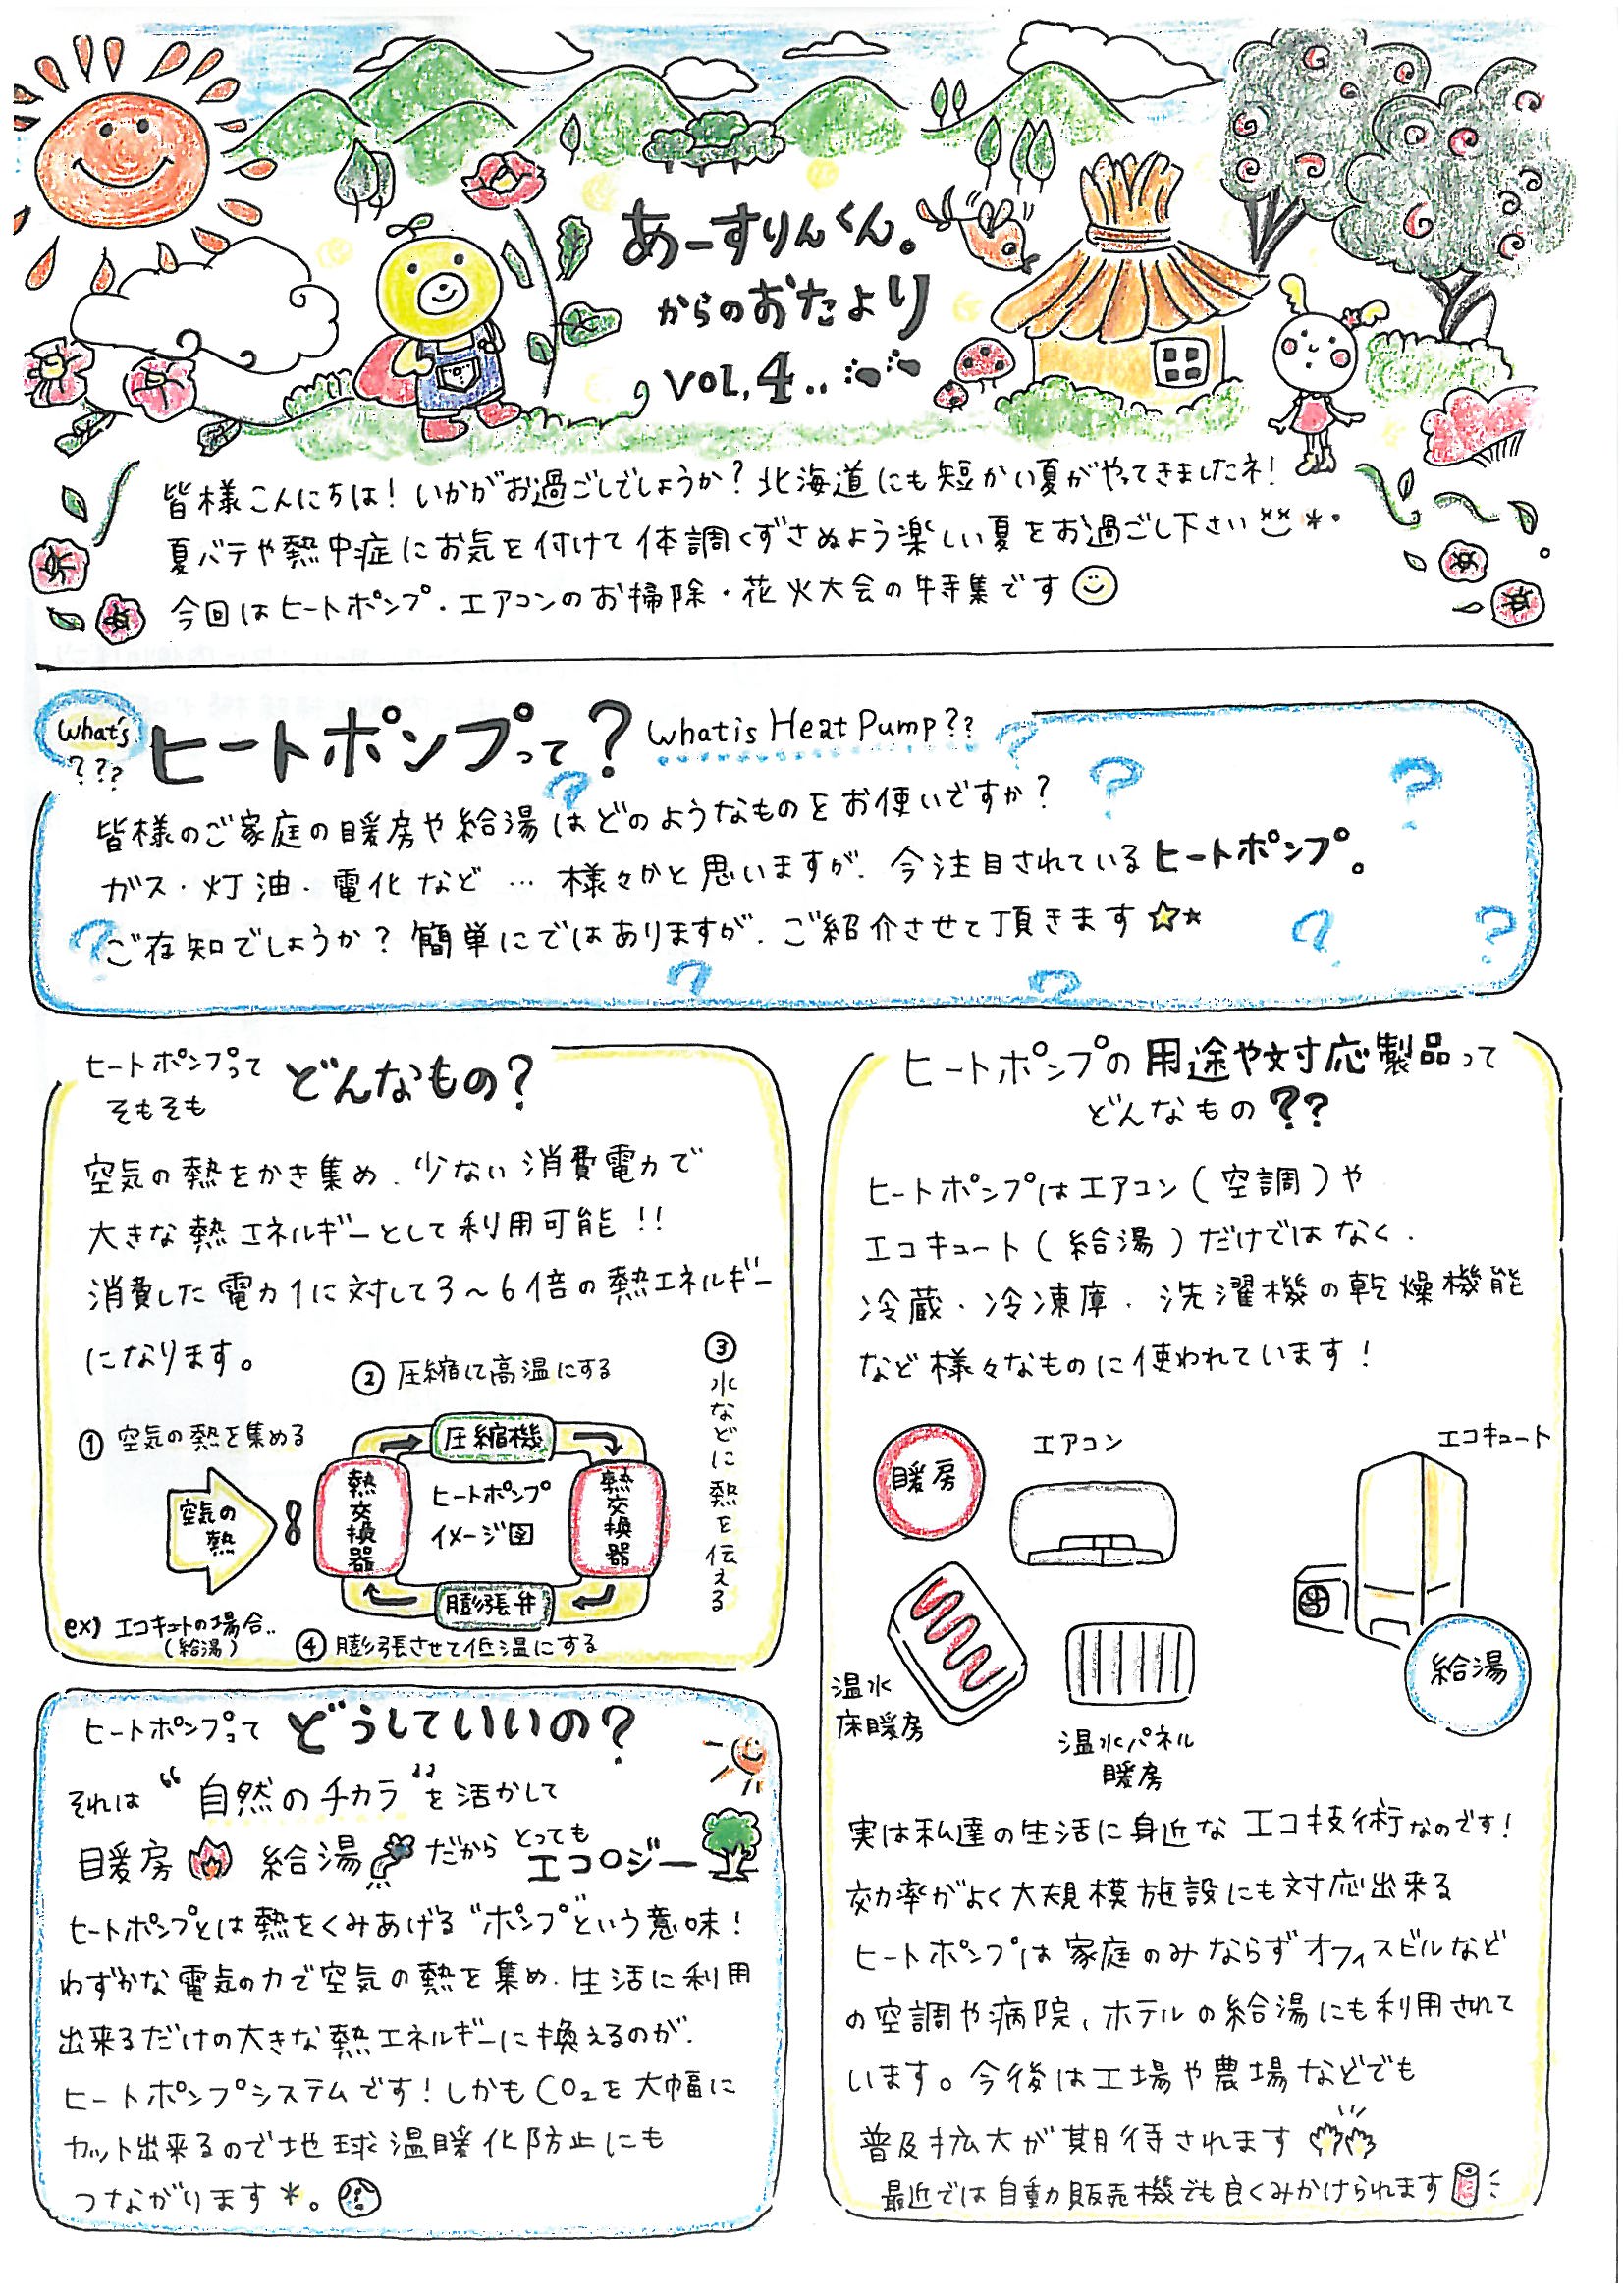 あーすりんくん。
からのおたより
VOL.4..
皆様こんにちは！いかがお過ごしでしょうか？北海道にも短かい夏がやってきましたネ！
夏バテや熱中症にお気を付けて体調くずさぬよう楽しい夏をお過ごし下さい
今回はヒートポンプ・エアコンのお掃除・花火大会の特集です
What's
???
ヒートポンプって？ What is Heat Pump??
皆様のご家庭の暖房や給湯はどのようなものをお使いですか？
ガス・灯油・電化など…様々かと思いますが、今注目されているヒートポンプ。
ご存知でしょうか？簡単にではありますが、ご紹介させて頂きます☆★
ヒートポンプって
そもそも
どんなもの？
空気の熱をかき集め、少ない消費電力で
大きな熱エネルギーとして利用可能！！
消費した電力1に対して3～6倍の熱エネルギー
になります。
①空気の熱を集める
②圧縮して高温にする
③水などに熱を伝える
空気の
熱
熱交換器
圧縮機
ヒートポンプ
イメージ図
熱交換器
膨張弁
ex) エコキュートの場合..
(給湯)
④膨張させて低温にする
ヒートポンプって どうしていいの？
それは“自然のチカラ”を活かして
暖房 給湯 だから とっても
エコロジー
ヒートポンプとは熱をくみあげる“ポンプ”という意味！
わずかな電気の力で空気の熱を集め、生活に利用
出来るだけの大きな熱エネルギーに換えるのが、
ヒートポンプシステムです！しかもCO₂を大幅に
カット出来るので地球温暖化防止にも
つながります*。
ヒートポンプの用途や対応製品って
どんなもの？？
ヒートポンプはエアコン(空調)や
エコキュート(給湯)だけではなく、
冷蔵・冷凍庫、洗濯機の乾燥機能
など様々なものに使われています！
暖房
エアコン
エコキュート
温水
床暖房
温水パネル
暖房
給湯
実は私達の生活に身近なエコ技術なのです！
効率がよく大規模施設にも対応出来る
ヒートポンプは家庭のみならずオフィスビルなど
の空調や病院、ホテルの給湯にも利用されて
います。今後は工場や農場などでも
普及拡大が期待されます
最近では自動販売機でも良くみかけられます